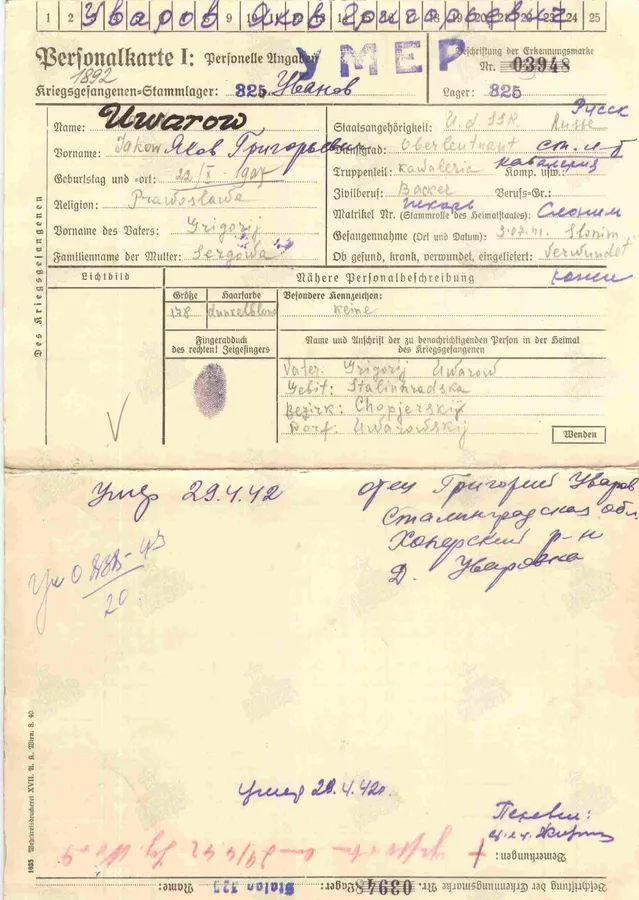 1 2 Уваров Яков Григорьевич 24 25
Personalkarte I: Personelle Angaben
УМЕР
Beschriftung der Erkennungsmarke
Nr. 03948
1892
Kriegsgefangenen-Stammlager: 325
Lager: 325
Des Kriegsgefangenen
Name: Uwarow
Vorname: Jakow Яков Григорьевич
Geburtstag und -ort: 22/X 1907
Religion: Prawoslawa
Vorname des Vaters: Grigorij
Familienname der Mutter: Sergowa
Русск
Staatsangehörigkeit: U.d.SSR Russe
Dienstgrad: Oberleutnant ст. л-т
Truppenteil: Kawaleria Komp. usw.:
кавалерия
Zivilberuf: Bäcker Berufs-Gr.:
пекарь
Matrikel Nr. (Stammrolle des Heimatstaates): Слоним
Gefangennahme (Ort und Datum): 3.07.41. Slonim
Ob gesund, krank, verwundet, eingeliefert: verwundet
Lichtbild
Nähere Personalbeschreibung
Größe Haarfarbe Besondere Kennzeichen:
178 dunkelblond keine
Fingerabdruck
des rechten! Zeigefingers
Name und Anschrift der zu benachrichtigenden Person in der Heimat
des Kriegsgefangenen
Vater: Grigorij Uwarow
Gebit: Stalinhradska
Bezirk: Chopjerskij
Dorf: Uwarowskij
Wenden
Умер 29.4.42
отец Григорий Уваров
Сталинградская обл.
Хоперский р-н
Д. Уваровка
20
умер 29.4.42г.
Перевел:
Bemerkungen:
1035 Wehrkreisdruckerei XVII. A. K., Wien. 8. 40.
Beschriftung der Erkennungsmarke Nr. 03948 Lager: Stalag 325 Name: